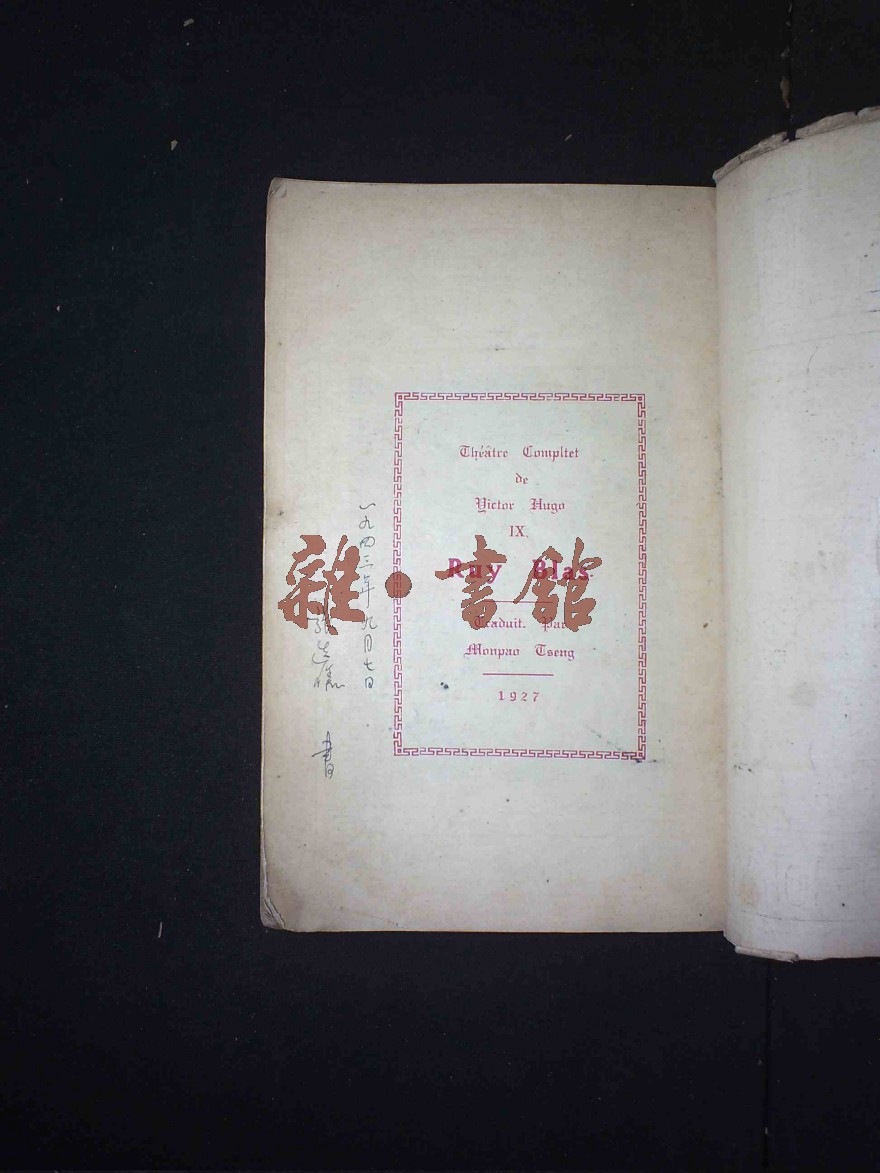 Théâtre Compltet
de
Victor Hugo
IX.
Ruy Blas
Traduit. Par
Monpao Tseng
1927
一九四三年九月七日
書
雜·書館